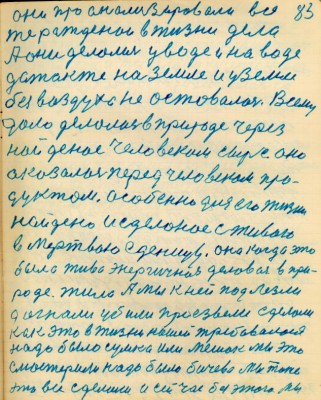 они проанализировали все 83
те ражденои в жизни дела
А они делолись у воде и на воде
да также на Земле и у Земли
без воздуха не остовалась. Всему
дало делолась в природе через
найденое Человеком сырье оно
оказалась перед Человеком про-
дуктом. особенно для его жизни
найдено и сделоное с живого
в мертваю сденицу, она когда это
была жива энергичная деловая в при-
роде. жила А мы к ней подлезли
догнали убили прозвали сделали
как это в жизни нашей требавалося
надо было сумка или мешок мы это
смостерили надо было бичева мы тоже
это все сделали и сей час без этого мы